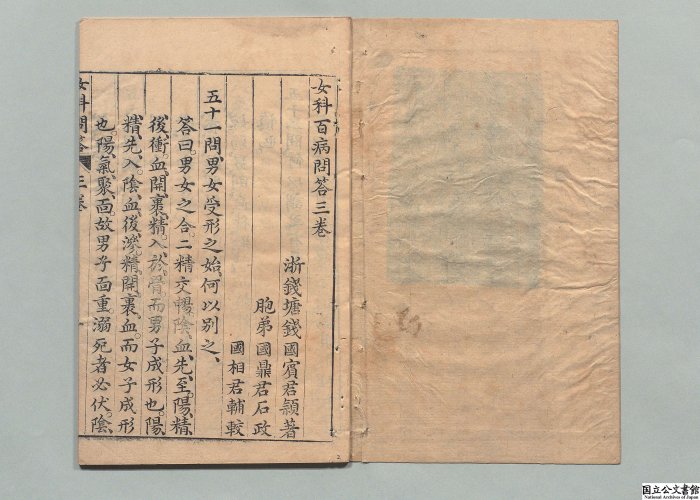 女科百病問答三巻
浙錢塘錢國賓君頴著
胞弟國鼎君石政
國相君輔較
五十一問、男女受形之始、何以别之、
答曰、男女之合。二精交暢、陰血先至。陽精
後衝、血開裹精、入於骨、而男子成形也。陽
精先入、陰血後滲、精開裹血、而女子成形
也。陽氣聚面、故男子面重。溺死者必伏。陰
女科問答
三巻
国立公文書館
National Archives of Japan